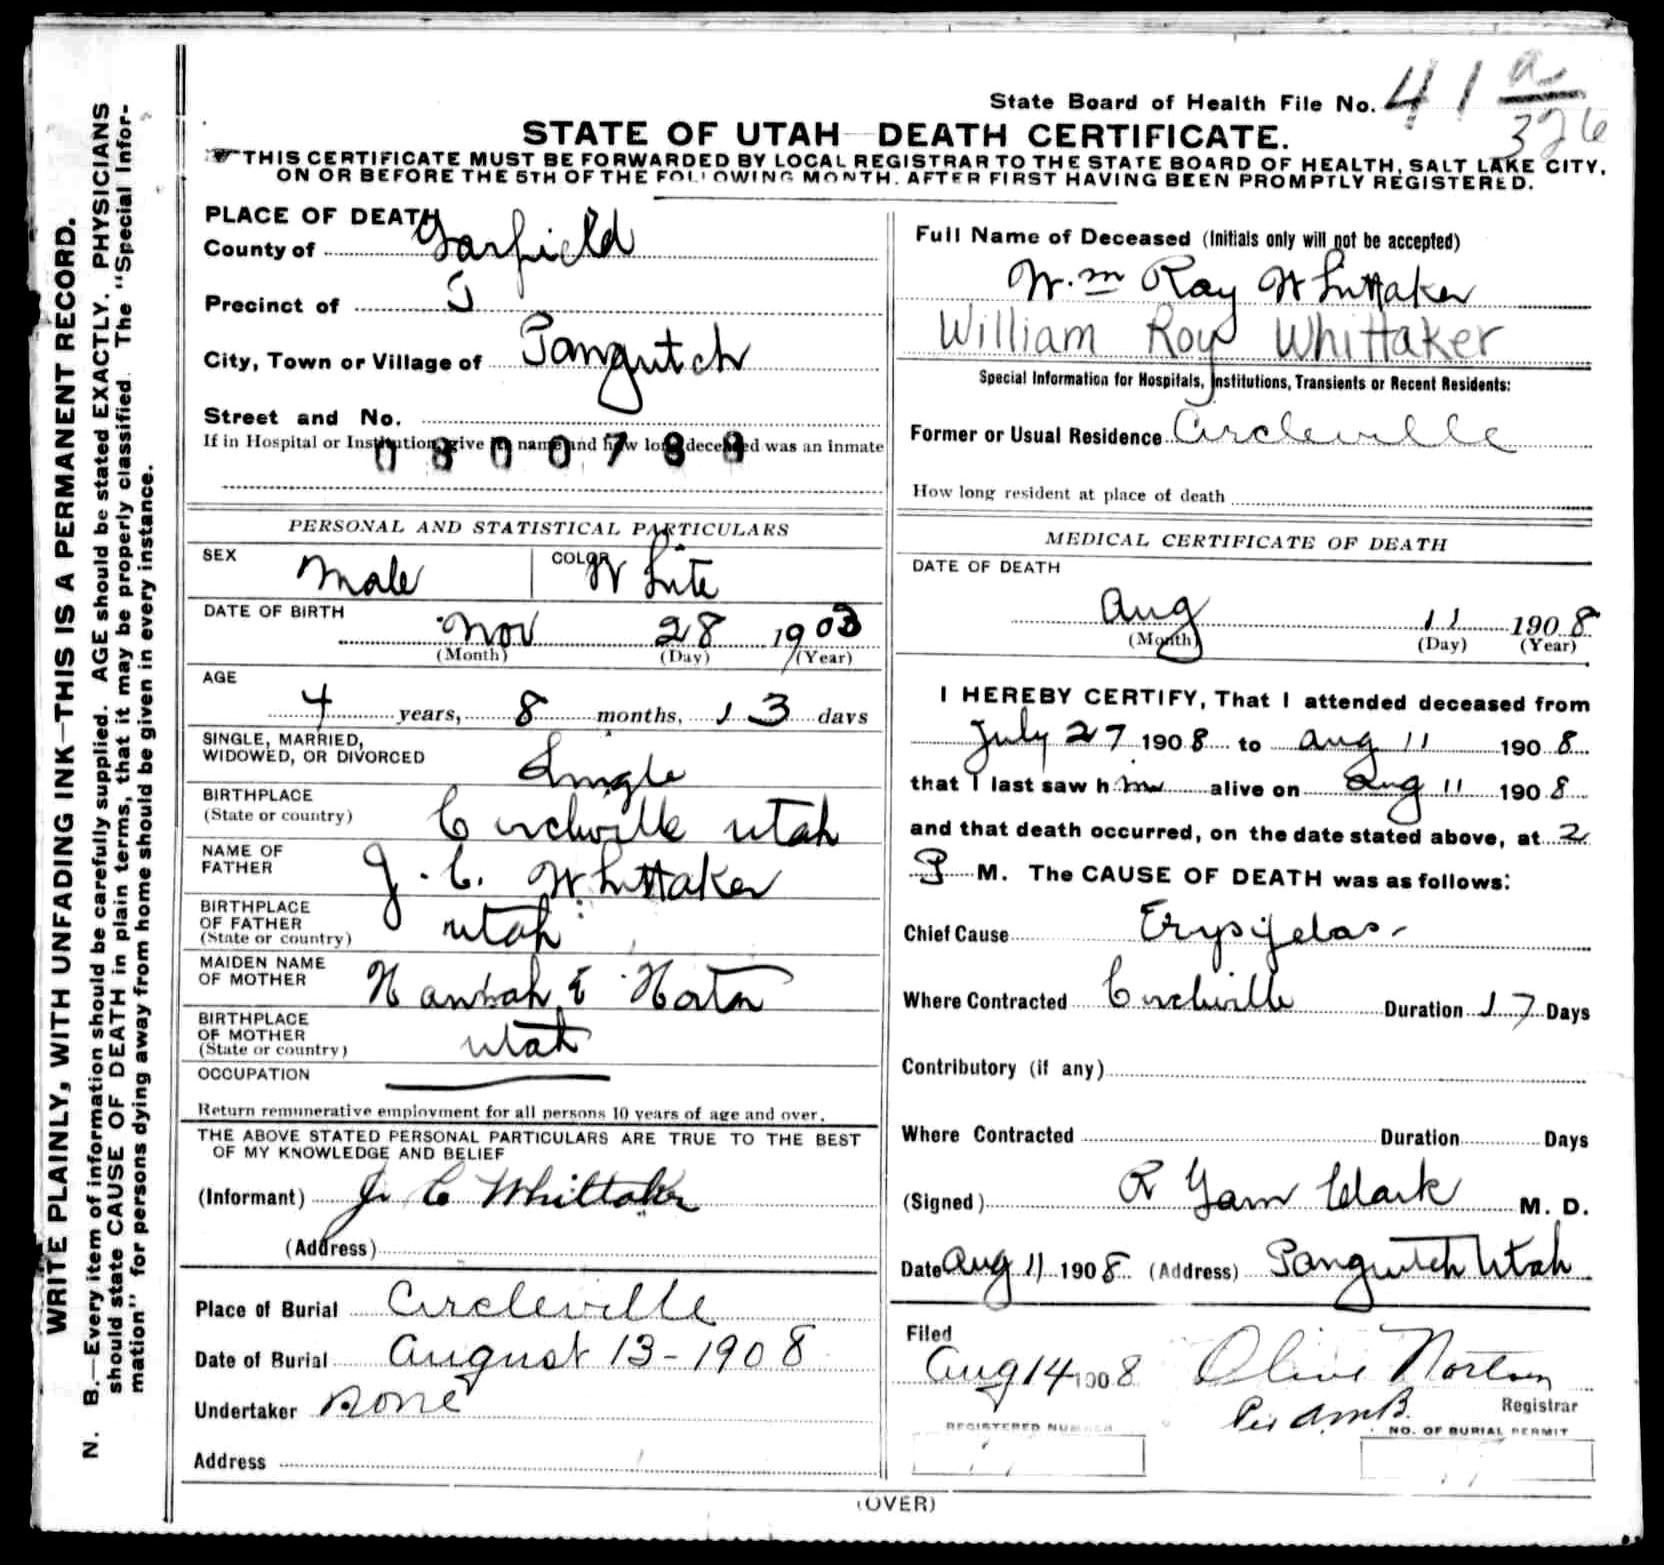 State Board of Health File No. 41 a
326
STATE OF UTAH—DEATH CERTIFICATE.
THIS CERTIFICATE MUST BE FORWARDED BY LOCAL REGISTRAR TO THE STATE BOARD OF HEALTH, SALT LAKE CITY,
ON OR BEFORE THE 5TH OF THE FOLLOWING MONTH, AFTER FIRST HAVING BEEN PROMPTLY REGISTERED.
WRITE PLAINLY, WITH UNFADING INK—THIS IS A PERMANENT RECORD.
N. B.—Every item of information should be carefully supplied. AGE should be stated EXACTLY. PHYSICIANS
should state CAUSE OF DEATH in plain terms, that it may be properly classified. The "Special Infor-
mation" for persons dying away from home should be given in every instance.
PLACE OF DEATH
County of Garfield
Precinct of
City, Town or Village of Panguitch
Street and No.
If in Hospital or Institution, give its name and how long deceased was an inmate
0800788
PERSONAL AND STATISTICAL PARTICULARS
SEX Male COLOR White
DATE OF BIRTH
Nov 28 1903
(Month) (Day) (Year)
AGE
4 years, 8 months, 13 days
SINGLE, MARRIED,
WIDOWED, OR DIVORCED Single
BIRTHPLACE
(State or country) Circleville Utah
NAME OF
FATHER J. C. Whittaker
BIRTHPLACE
OF FATHER
(State or country) Utah
MAIDEN NAME
OF MOTHER Hannah E Norton
BIRTHPLACE
OF MOTHER
(State or country) Utah
OCCUPATION
Return remunerative employment for all persons 10 years of age and over.
THE ABOVE STATED PERSONAL PARTICULARS ARE TRUE TO THE BEST
OF MY KNOWLEDGE AND BELIEF
(Informant) J C Whittaker
(Address)
Place of Burial Circleville
Date of Burial August 13-1908
Undertaker None
Address
Full Name of Deceased (Initials only will not be accepted)
Wm Ray Whittaker
William Roy Whittaker
Special Information for Hospitals, Institutions, Transients or Recent Residents:
Former or Usual Residence Circleville
How long resident at place of death
MEDICAL CERTIFICATE OF DEATH
DATE OF DEATH
Aug 11 1908
(Month) (Day) (Year)
I HEREBY CERTIFY, That I attended deceased from
July 27 1908 to Aug 11 1908
that I last saw him alive on Aug 11 1908
and that death occurred, on the date stated above, at 2
P M. The CAUSE OF DEATH was as follows:
Chief Cause Erysipelas
Where Contracted Circleville Duration 17 Days
Contributory (if any)
Where Contracted Duration Days
(Signed) R Garn Clark M. D.
Date Aug 11 1908 (Address) Panguitch Utah
Filed
Aug 14 1908 Olive Norton
Per AMB. Registrar
REGISTERED NUMBER NO. OF BURIAL PERMIT
(OVER)